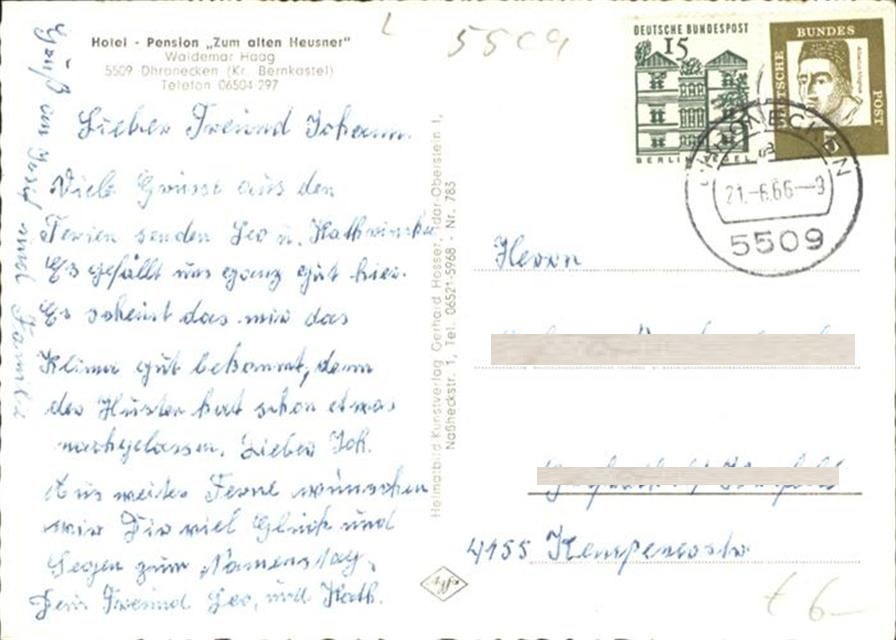 Hotel - Pension „Zum alten Heusner"
Waldemar Haag
5509 Dhronecken (Kr. Bernkastel)
Telefon 06504-297
Lieber Freund Johann.
Viele Grüsse aus den
Ferien senden Leo u.
Es gefällt uns ganz gut hier.
Es scheint das mir das
Klima gut bekommt, denn
der Husten hat schon etwas
nachgelassen. Lieber Joh.
Aus weiter Ferne wünschen
wir Dir viel Glück und
Segen zum Namenstag.
Dein Freund Leo, und Kath.
Gruß an Josef und Familie
Heimatbild Kunstverlag Gerhard Hosser, Idar-Oberstein 1,
Naßheckstr. 1, Tel. 06521-5968 - Nr. 783
Agfa
55 C9
DEUTSCHE BUNDESPOST
15
BERLIN TEGEL
DEUTSCHE BUNDES POST
DHRONECKEN
21.-6.66--9
5509
Herrn
4155
6-